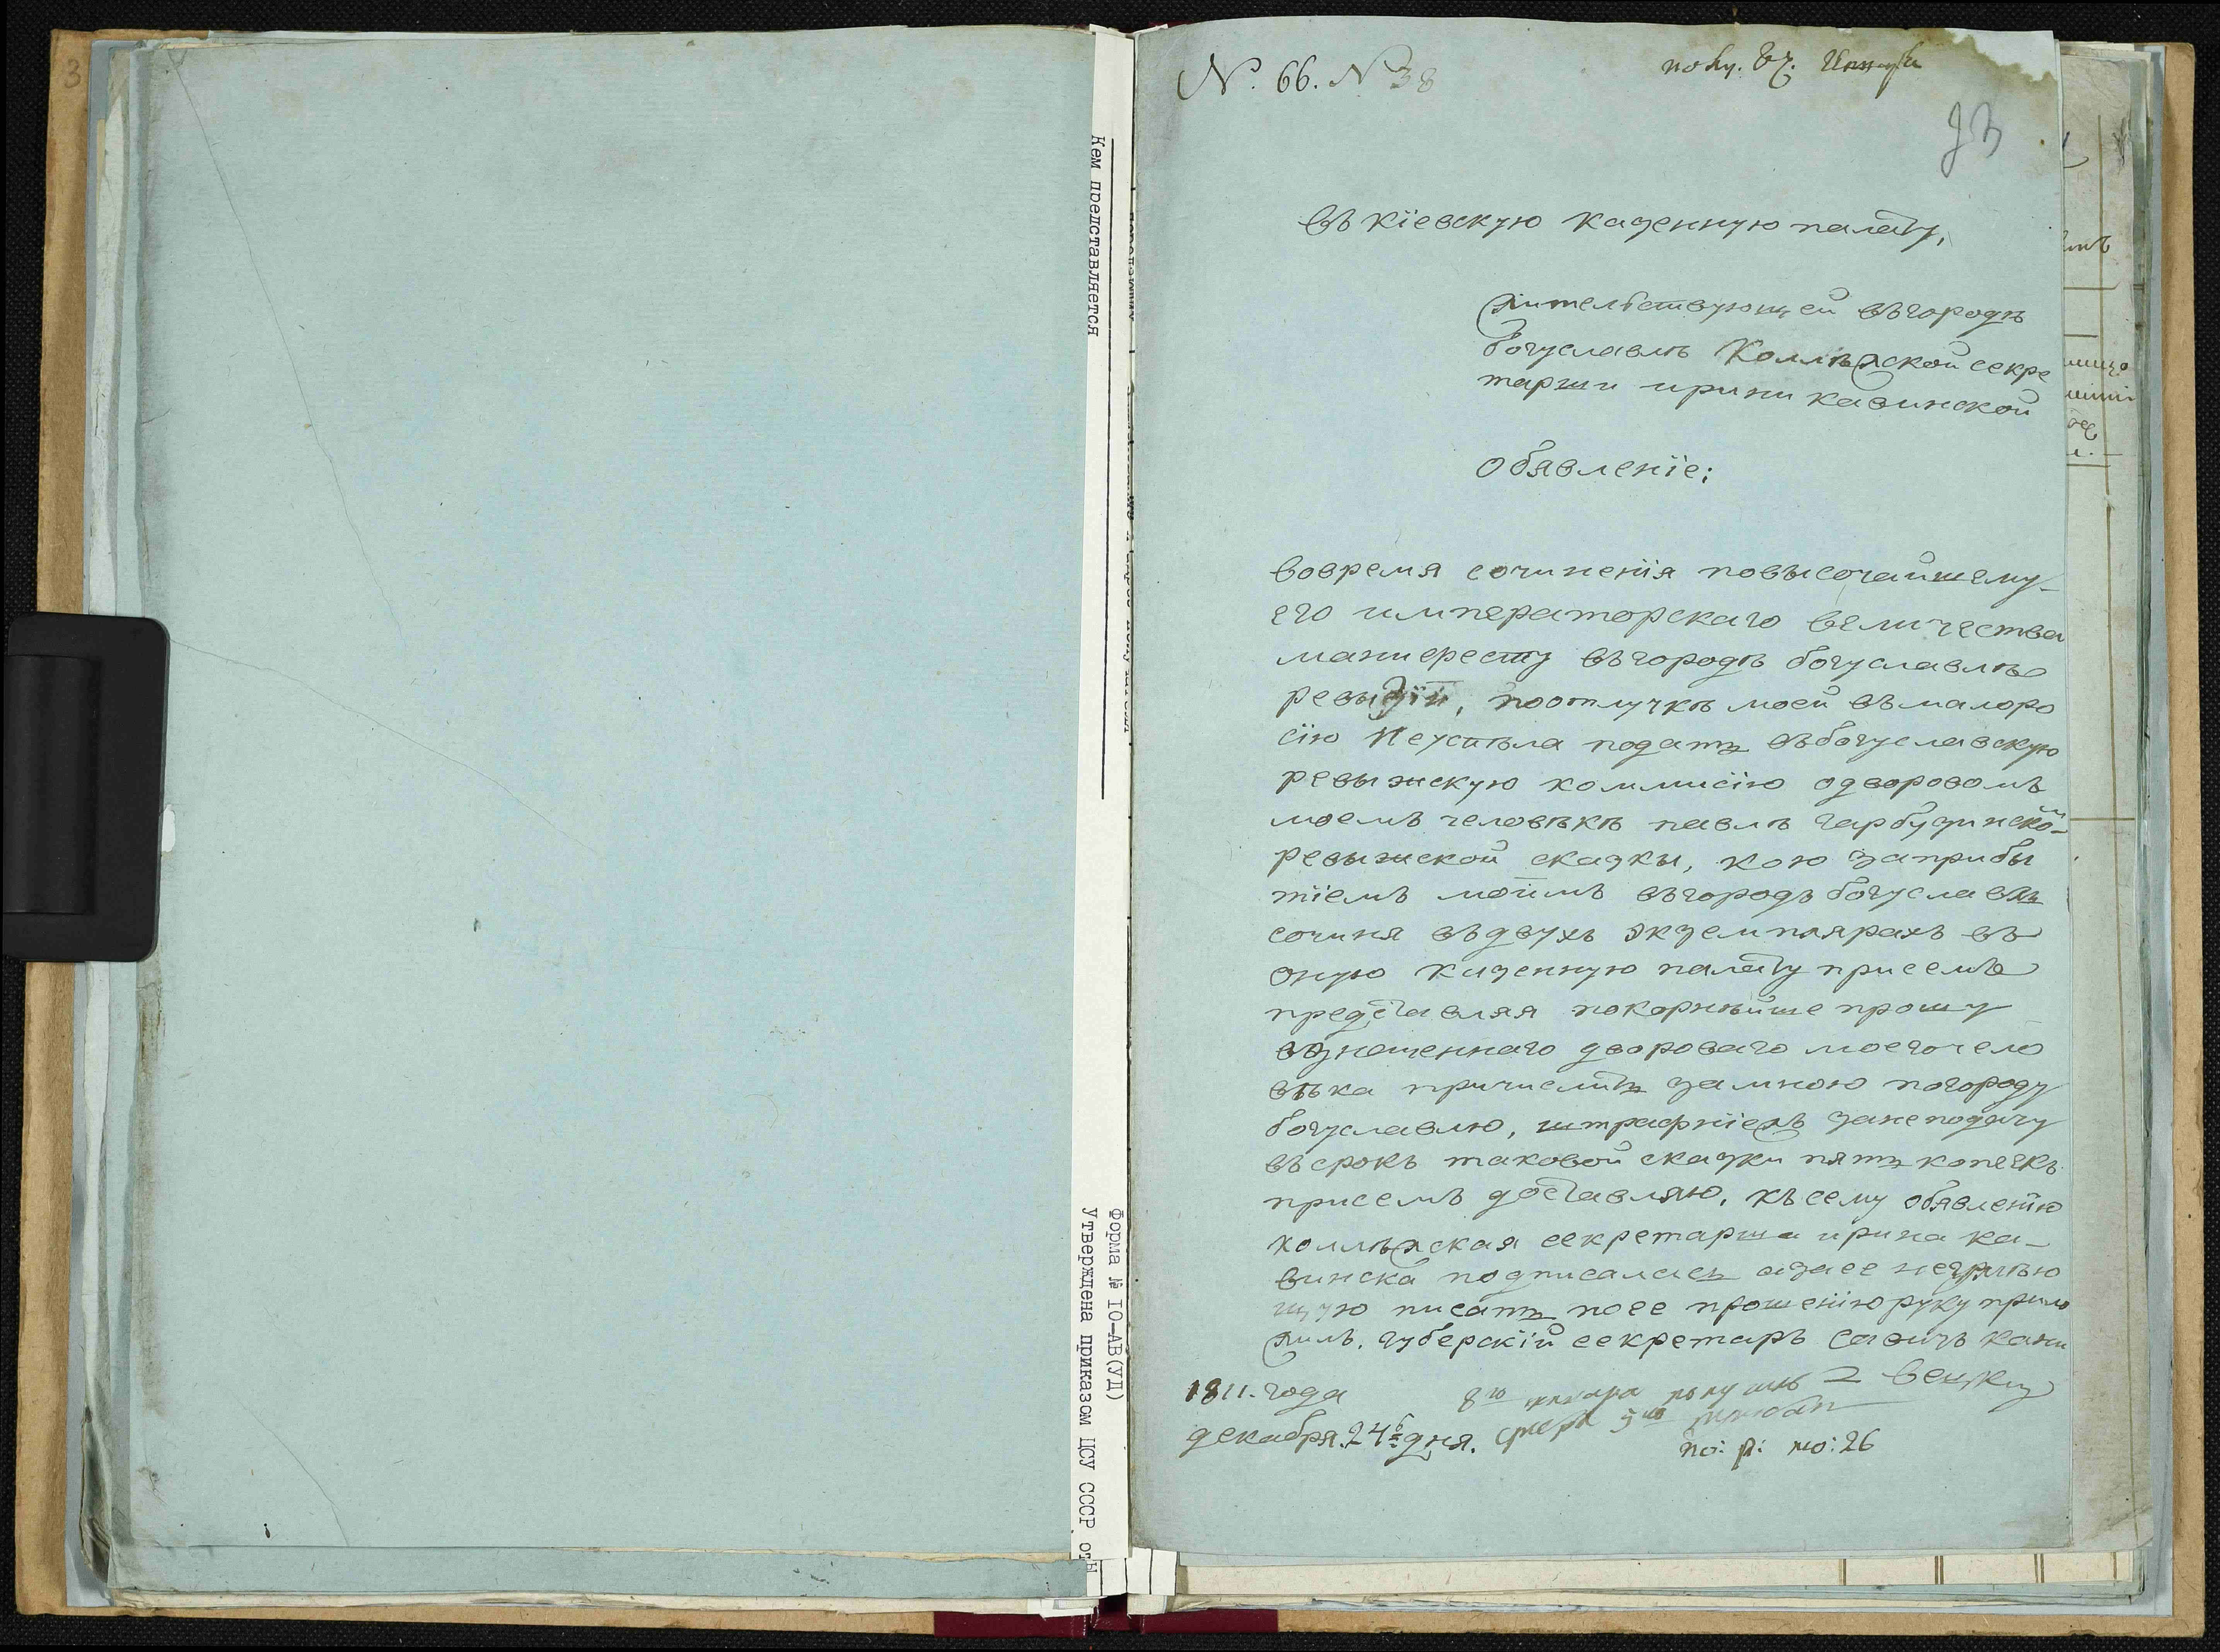 3
Кем представляется
Форма № 10-АВ(УД)
Утверждена приказом ЦСУ СССР от
№. 66. № 38
полу.
въ кіевскую казенную палату,
жителствующей въгородѣ
богуславлѣ Коллѣжской секре
тарши ирини кавинской
обявленіе:
вовремя сочиненія повысочайшему
его императорскаго величества
манифесту въгородѣ богуславлѣ
ревызіи, поотлучкѣ моей въ малоро
сію Неуспѣла подать въбогуславскую
ревыжскую коммисію одворовомъ
моемъ человѣкѣ павлѣ гарбузинском
ревыжской сказкы, кою заприбы
тіемъ моимъ въгородъ богуславль
сочиня въдвухъ экземплярахъ въ
оную казенную палату присемъ
представляя покорнѣйше прошу
взнешеннаго двороваго моего чело
вѣка причислить замною погороду
богуславлю, штрафніежъ занеподачу
въсрокъ таковой сказки пять копеекъ
присемъ доставляю, къ сему обявленію
коллѣжская секретарша ирина ка-
винска подписалась азаее неграмѣю
щую писать поее прошенію руку прило
жилъ. губерскій секретарь савичъ
1811. года
декабря. 24 дня.
8го
по: р: но: 26